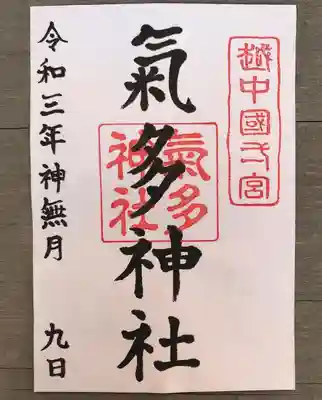 越中國一宮
氣多神社
氣多神社
令和三年神無月 九日